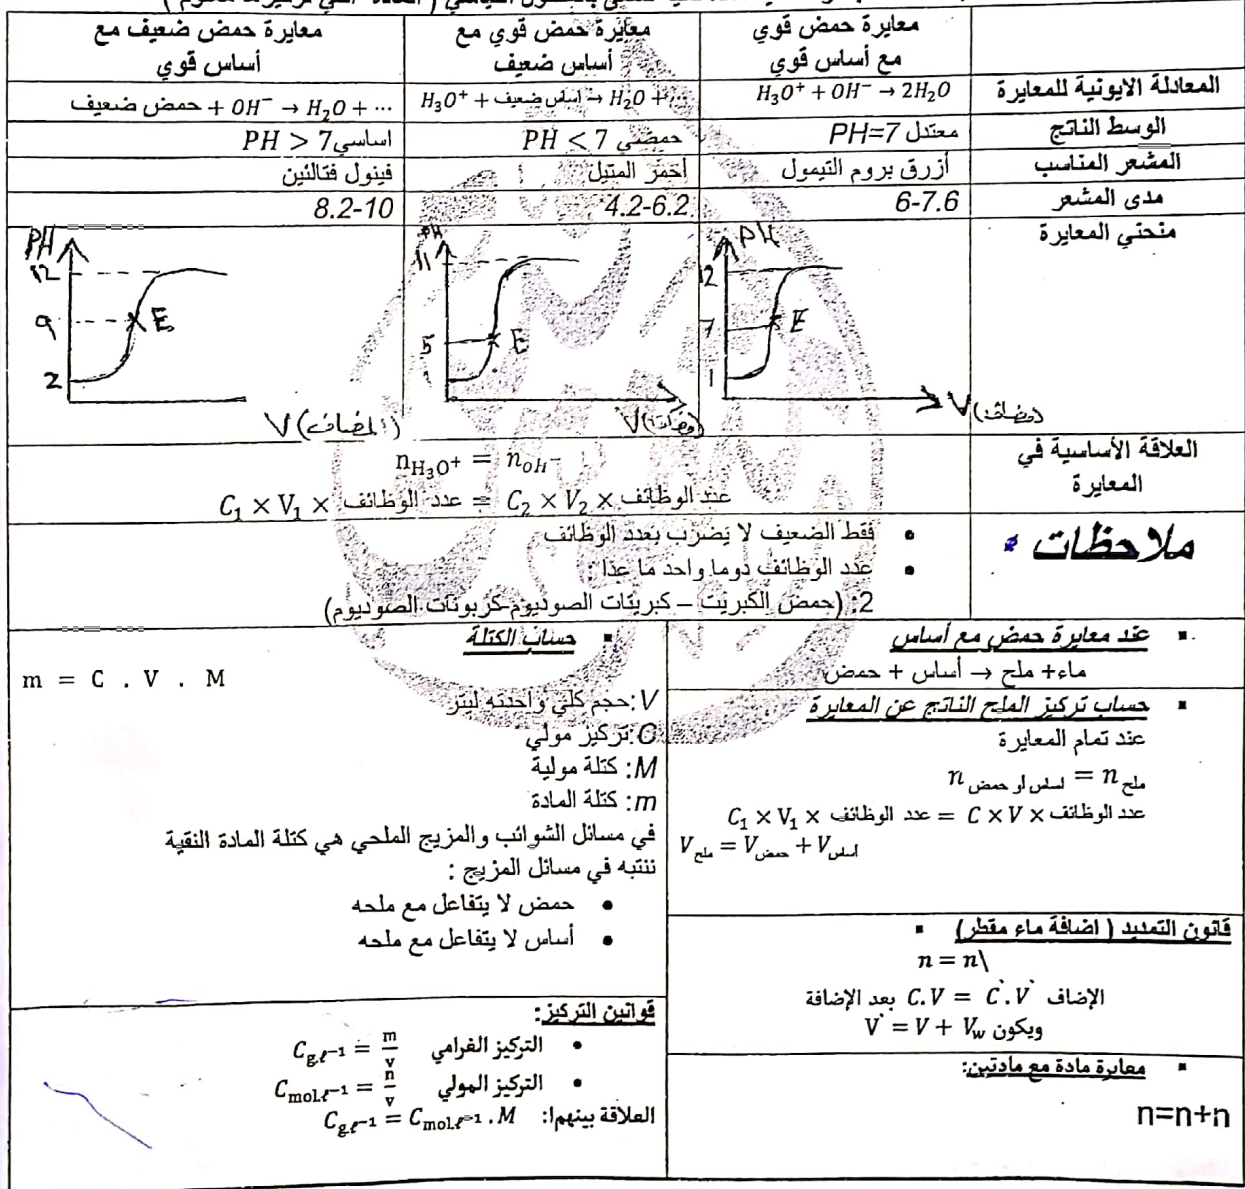 معايرة حمض قوي مع أساس قوي
معايرة حمض قوي مع أساس ضعيف
معايرة حمض ضعيف مع أساس قوي
المعادلة الايونية للمعايرة
H₃O⁺ + OH⁻ → 2H₂O
H₃O⁺ + اساس ضعيف → H₂O + ...
حمض ضعيف + OH⁻ → H₂O + ...
الوسط الناتج
معتدل PH=7
حمضي PH < 7
اساسي PH > 7
المشعر المناسب
أزرق بروم التيمول
أحمر المتيل
فينول فتالئين
مدى المشعر
6-7.6
4.2-6.2
8.2-10
منحني المعايرة
PH
12
7
1
E
V (مضاف)
PH
11
5
E
V (مضاف)
PH
12
9
2
E
V (المضاف)
العلاقة الأساسية في المعايرة
n_{H₃O⁺} = n_{OH⁻}
C₁ × V₁ × عدد الوظائف = C₂ × V₂ × عدد الوظائف
ملاحظات
• فقط الضعيف لا يضرب بعدد الوظائف
• عدد الوظائف دوما واحد ما عدا :
2: (حمض الكبريت – كبريتات الصوديوم-كربونات الصوديوم)
▪ عند معايرة حمض مع أساس
حمض + أساس → ملح +ماء
▪ حساب تركيز الملح الناتج عن المعايرة
عند تمام المعايرة
n ملح = n اساس أو حمض
C₁ × V₁ × عدد الوظائف = C × V × عدد الوظائف
V ملح = V حمض + V أساس
قانون التمديد ( اضافة ماء مقطر) ▪
n = n\
الإضاف C.V = C`.V` بعد الإضافة
ويكون V` = V + V_w
▪ معايرة مادة مع مادتين:
n=n+n
▪ حساب الكتلة
m = C . V . M
V: حجم كلي واحدته ليتر
C: تركيز مولي
M: كتلة مولية
m: كتلة المادة
في مسائل الشوائب والمزيج الملحي هي كتلة المادة النقية
ننتبه في مسائل المزيج :
• حمض لا يتفاعل مع ملحه
• أساس لا يتفاعل مع ملحه
قوانين التركيز:
• التركيز الغرامي C_{g.ℓ⁻¹} = m/v
• التركيز المولي C_{mol.ℓ⁻¹} = n/v
العلاقة بينهما: C_{g.ℓ⁻¹} = C_{mol.ℓ⁻¹} . M